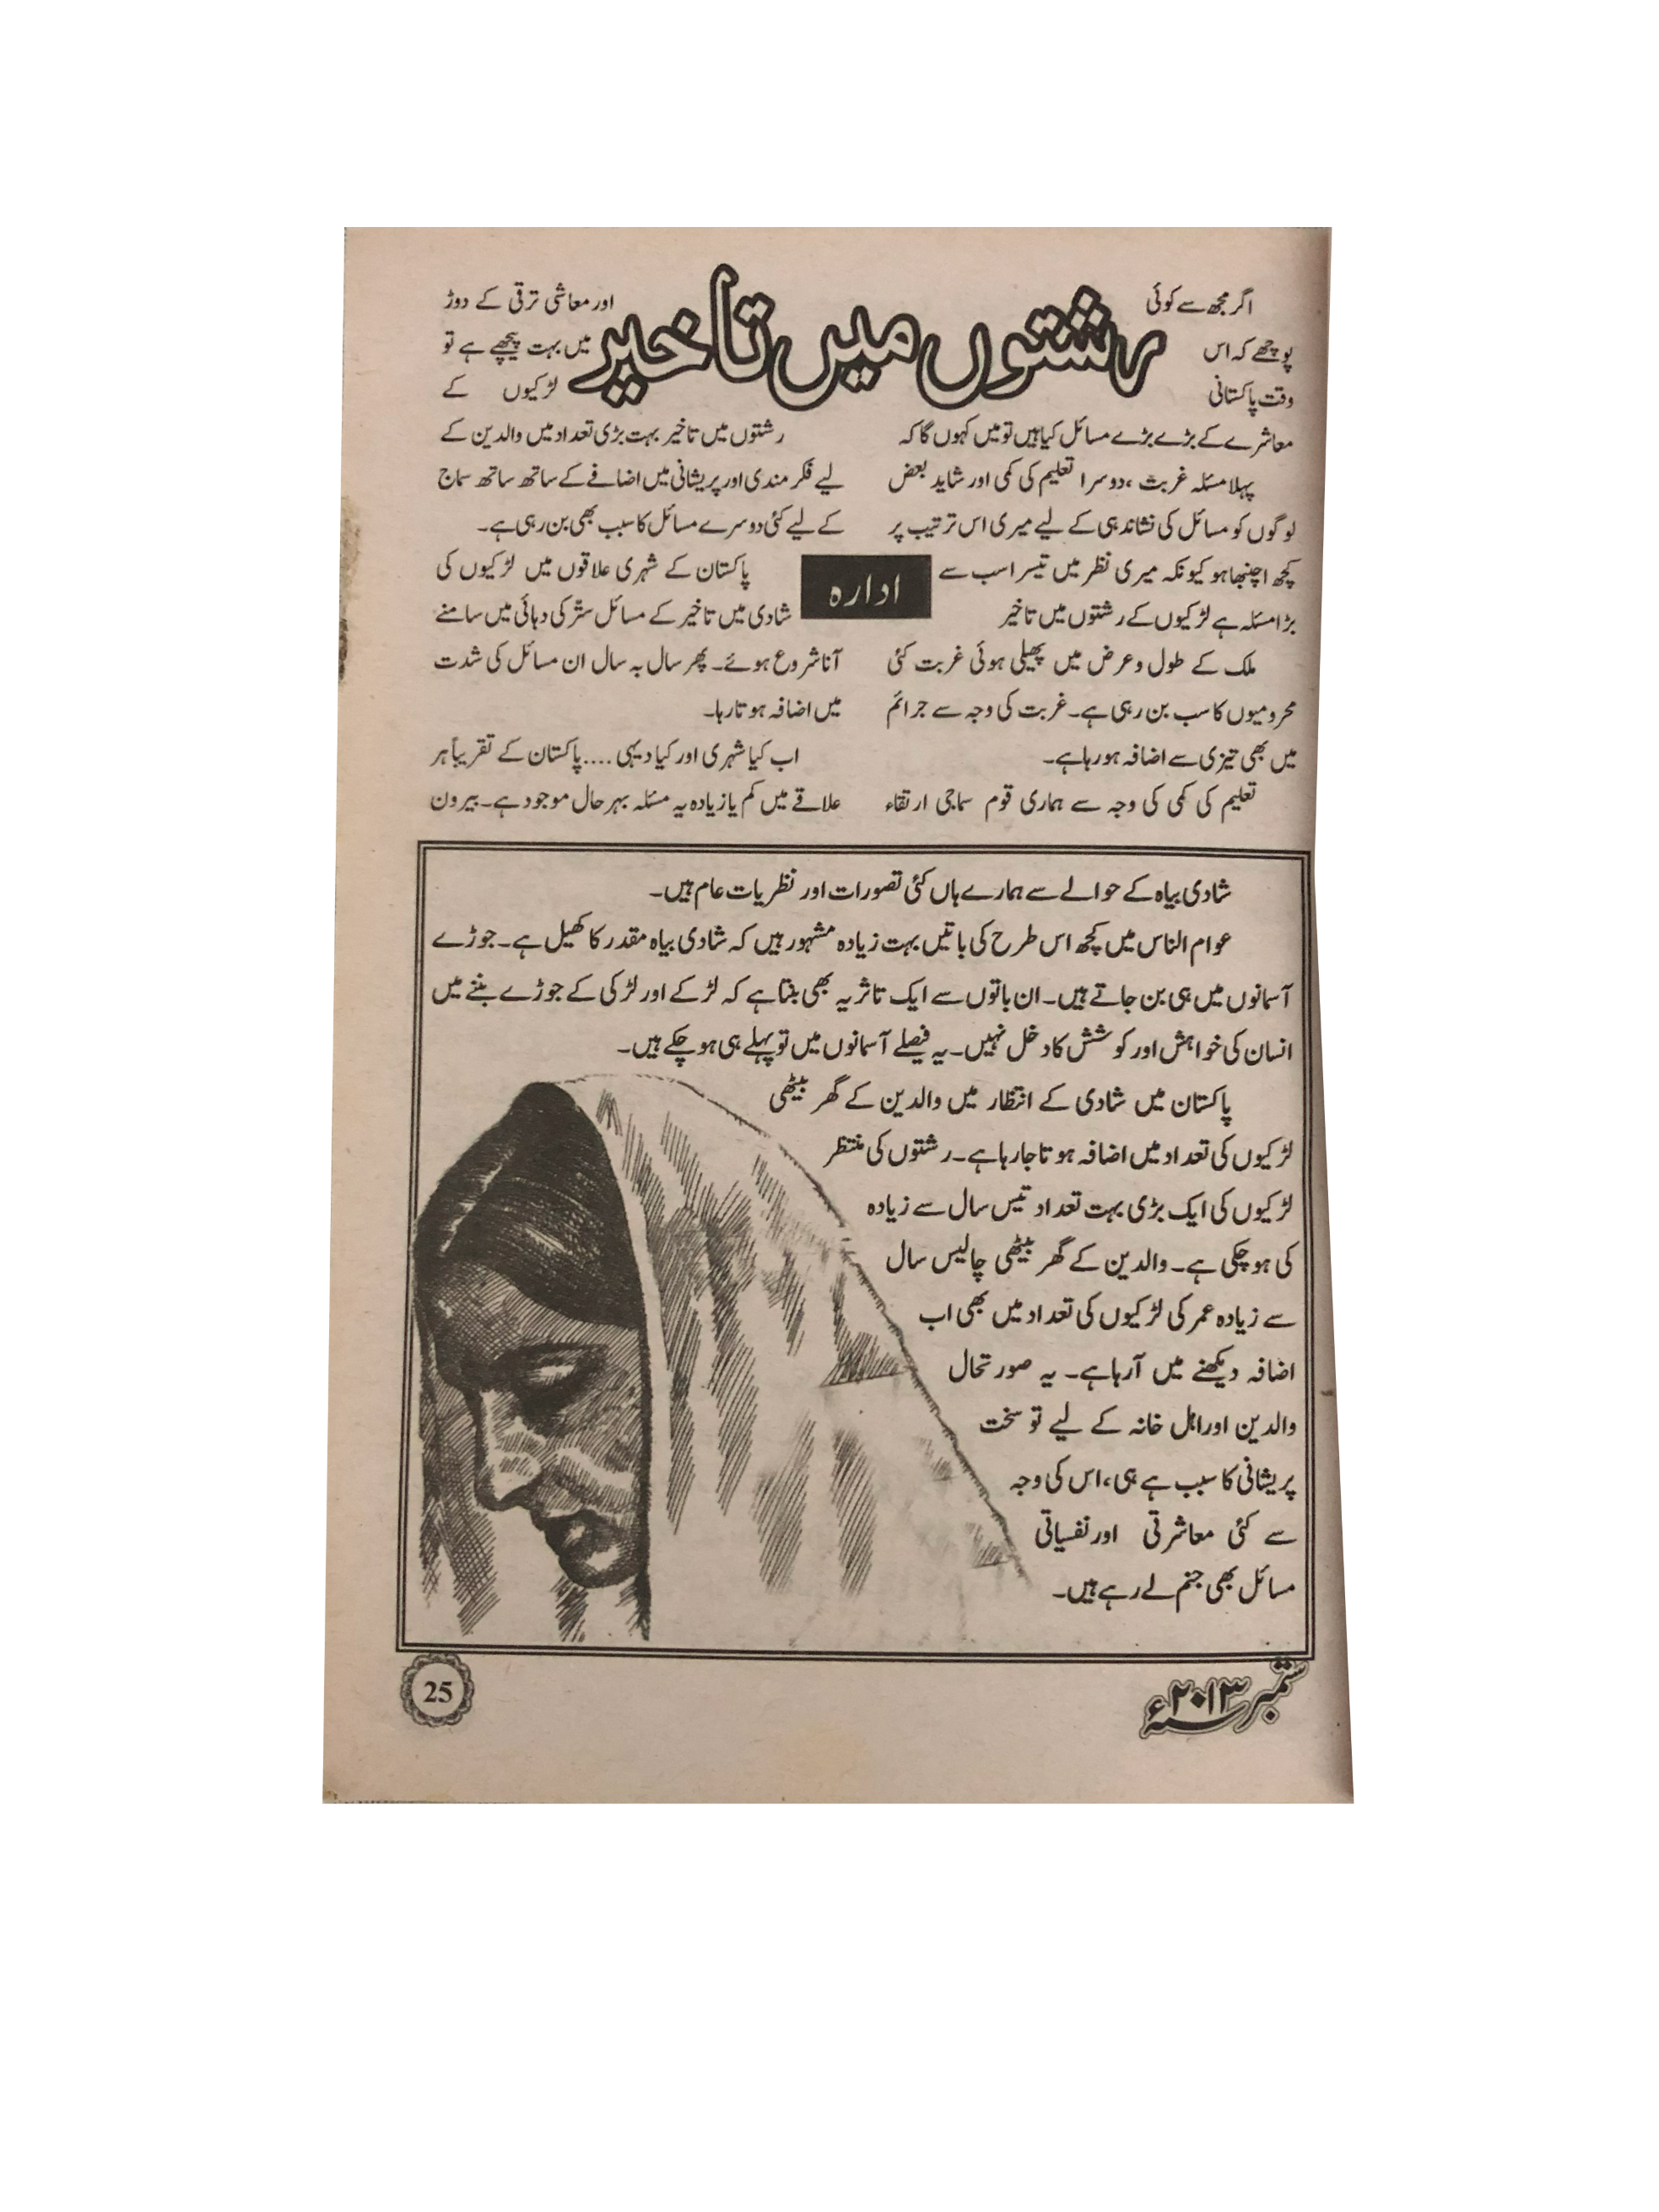 رشتوں میں تاخیر
اگر مجھ سے کوئی
پوچھے کہ اس
وقت پاکستانی
معاشرے کے بڑے بڑے مسائل کیا ہیں تو میں کہوں گا کہ
پہلا مسئلہ غربت ، دوسرا تعلیم کی کمی اور شاید بعض
لوگوں کو مسائل کی نشاندہی کے لیے میری اس ترتیب پر
کچھ اچنبھا ہو کیونکہ میری نظر میں تیسرا سب سے
بڑا مسئلہ ہے لڑکیوں کے رشتوں میں تاخیر
ملک کے طول و عرض میں پھیلی ہوئی غربت کئی
محرومیوں کا سب بن رہی ہے۔ غربت کی وجہ سے جرائم
میں بھی تیزی سے اضافہ ہورہا ہے۔
تعلیم کی کمی کی وجہ سے ہماری قوم سماجی ارتقاء
ادارہ
اور معاشی ترقی کے دوڑ
میں بہت پیچھے ہے تو
لڑکیوں کے
رشتوں میں تاخیر بہت بڑی تعداد میں والدین کے
لیے فکر مندی اور پریشانی میں اضافے کے ساتھ ساتھ سماج
کے لیے کئی دوسرے مسائل کا سبب بھی بن رہی ہے۔
پاکستان کے شہری علاقوں میں لڑکیوں کی
شادی میں تاخیر کے مسائل ستّر کی دہائی میں سامنے
آنا شروع ہوئے۔ پھر سال بہ سال ان مسائل کی شدت
میں اضافہ ہوتا رہا۔
اب کیا شہری اور کیا دیہی .... پاکستان کے تقریباً ہر
علاقے میں کم یا زیادہ یہ مسئلہ بہرحال موجود ہے۔ بیرون
شادی بیاہ کے حوالے سے ہمارے ہاں کئی تصورات اور نظریات عام ہیں۔
عوام الناس میں کچھ اس طرح کی باتیں بہت زیادہ مشہور ہیں کہ شادی بیاہ مقدر کا کھیل ہے۔ جوڑے
آسمانوں میں ہی بن جاتے ہیں۔ ان باتوں سے ایک تاثر یہ بھی بنتا ہے کہ لڑکے اور لڑکی کے جوڑے بننے میں
انسان کی خواہش اور کوشش کا دخل نہیں۔ یہ فیصلے آسمانوں میں تو پہلے ہی ہوچکے ہیں۔
پاکستان میں شادی کے انتظار میں والدین کے گھر بیٹھی
لڑکیوں کی تعداد میں اضافہ ہوتا جارہا ہے۔ رشتوں کی منتظر
لڑکیوں کی ایک بڑی بہت تعداد تیس سال سے زیادہ
کی ہوچکی ہے۔ والدین کے گھر بیٹھی چالیس سال
سے زیادہ عمر کی لڑکیوں کی تعداد میں بھی اب
اضافہ دیکھنے میں آرہا ہے۔ یہ صورتحال
والدین اور اہل خانہ کے لیے تو سخت
پریشانی کا سبب ہے ہی، اس کی وجہ
سے کئی معاشرتی اور نفسیاتی
مسائل بھی جنم لے رہے ہیں۔
ستمبر ۲۰۱۳ء
25